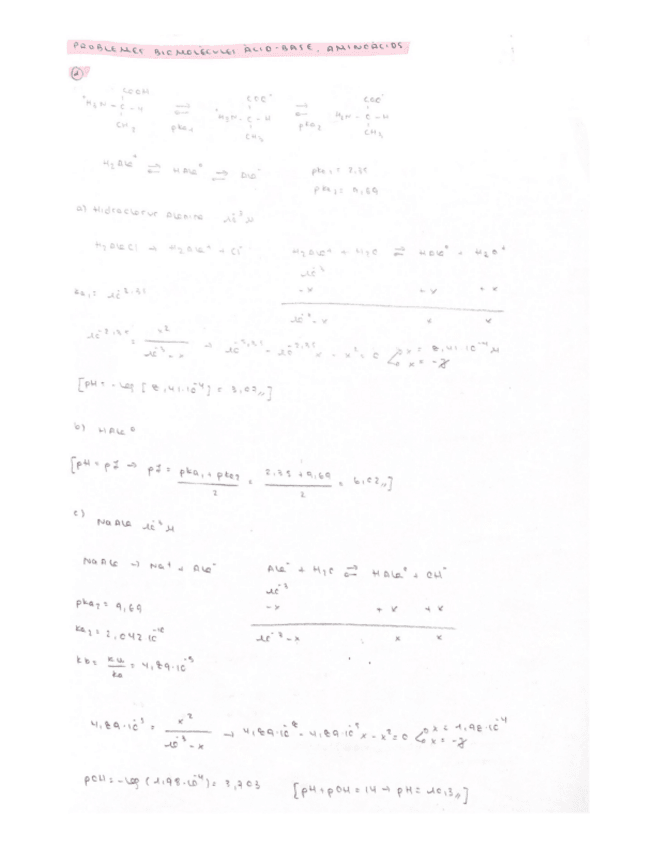 PROBLEMES BIOMOLÈCULES ÀCID-BASE. AMINOÀCIDS
COOH COO⁻ COO⁻
⁺H₃N - C - H ⇌ ⁺H₃N - C - H ⇌ H₂N - C - H
CH₃ pka₁ CH₃ pka₂ CH₃
H₂Ala⁺ ⇌ HAla⁰ ⇌ Ala⁻ pka₁ = 2,35
pka₂ = 9,69
a) Hidroclorur Alanina 10⁻³ M
H₂AlaCl → H₂Ala⁺ + Cl⁻ H₂Ala⁺ + H₂O ⇌ HAla⁰ + H₃O⁺
10⁻³
ka₁ = 10⁻²·³⁵ -x +x +x
10⁻³-x x x
10⁻²·³⁵ = x² / 10⁻³-x → 10⁻⁵·³⁵ - 10⁻²·³⁵ x - x² = 0 x = 8,41·10⁻⁴ M
[pH = -log [8,41·10⁻⁴] = 3,07,,]
b) HAla⁰
[pH = pI → pI = pka₁ + pka₂ / 2 = 2,35 + 9,69 / 2 = 6,02,,]
c)
NaAla 10⁻³ M
NaAla → Na⁺ + Ala⁻ Ala⁻ + H₂O ⇌ HAla⁰ + OH⁻
10⁻³
pka₂ = 9,69 -x +x +x
ka₂ = 2,042·10⁻¹⁰ 10⁻³-x x x
kb = kw / ka = 4,89·10⁻⁵
4,89·10⁻⁵ = x² / 10⁻³-x → 4,89·10⁻⁸ - 4,89·10⁻⁵ x - x² = 0 x = 1,98·10⁻⁴
pOH = -log (1,98·10⁻⁴) = 3,703 [pH + pOH = 14 → pH = 10,3,,]